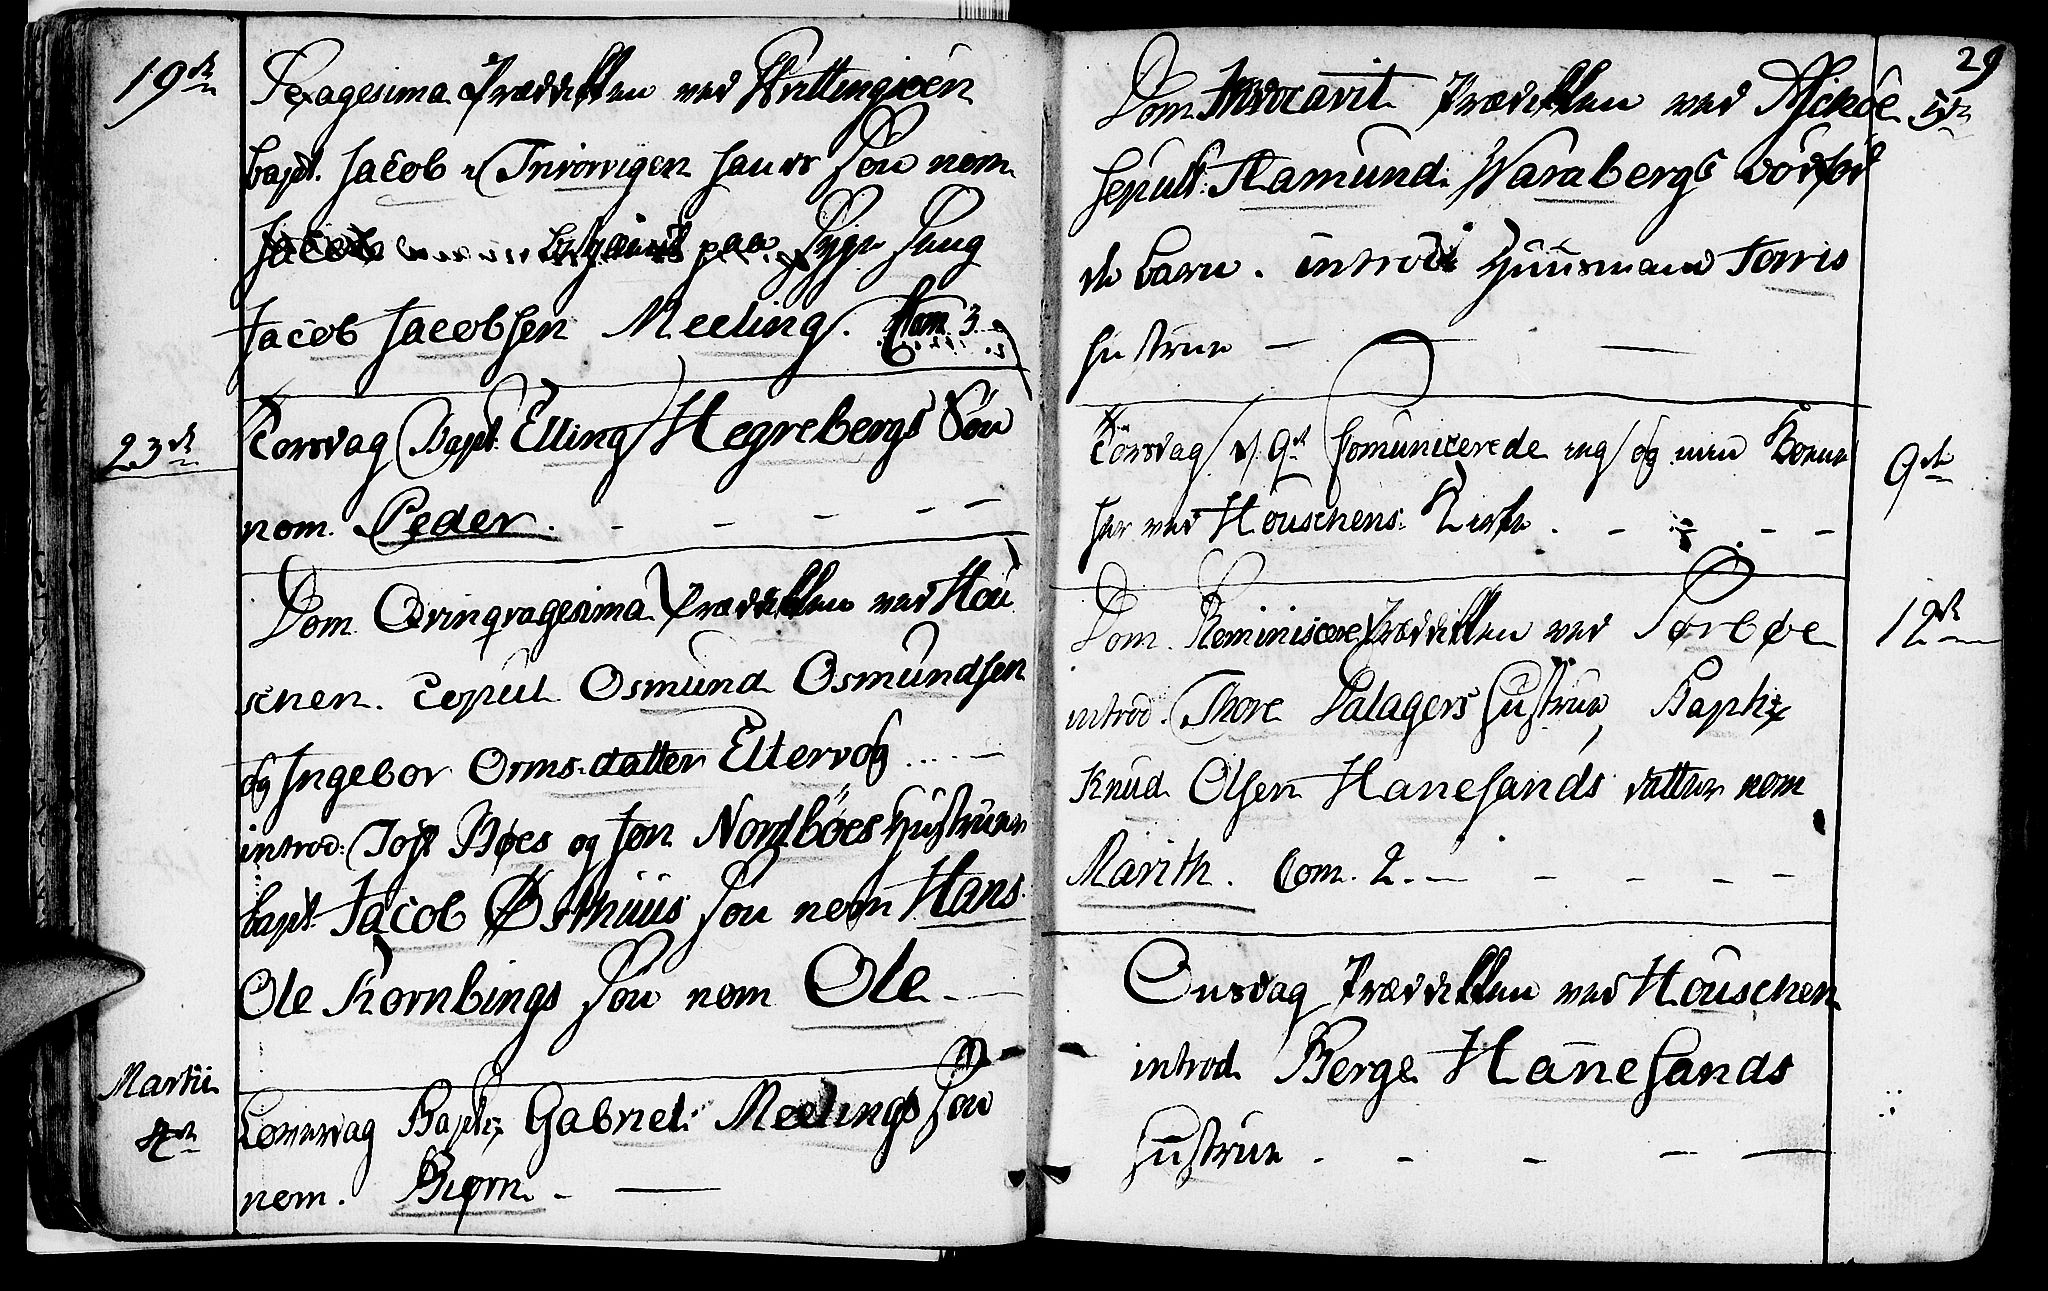 19de Sexagesima Prædikken ved Huttingiøen
bapt. Jacob Søn nom.
Jacob paa Syge Seng
Jacob Jacobsen Meeling. Com 3
23de Torsdag Bapt. Elling Hegrebergs Søn
nom. Peder.
Dom Qvinqvagesima Prædikken ved Hou
schen. Sepul Osmund Osmundsen
og Ingebor Orms datter Eltervog
introd: Tost Bøes og Jon Nordbøes Hustruer
bapt. Jacob Østhuus Søn nom Hans.
Ole Kornbings Søn nom Ole
Martii
4de Løverdag Bapt. Gabriel Meelings Søn
nom. Biørn.
29
Dom. Invocavit Prædikken ved Aschøe 5te
sepult: Hamund Warabergs
de barn. introd Huusmand Torris
Hustrue
Torsdag d. 9de Comunicerede ieg og min Konne 9de
her ved Houschens Kirke.
Dom. Reminiscere Prædikken ved Sørbøe 12te
introd. Thore Dalagers Hustrue, Bapt.
Knud Olsen Hanesands datter nom
Marith. Com. 2.
Onsdag Prædikken ved Houschen
introd. Berge Hanesands
Hustrue